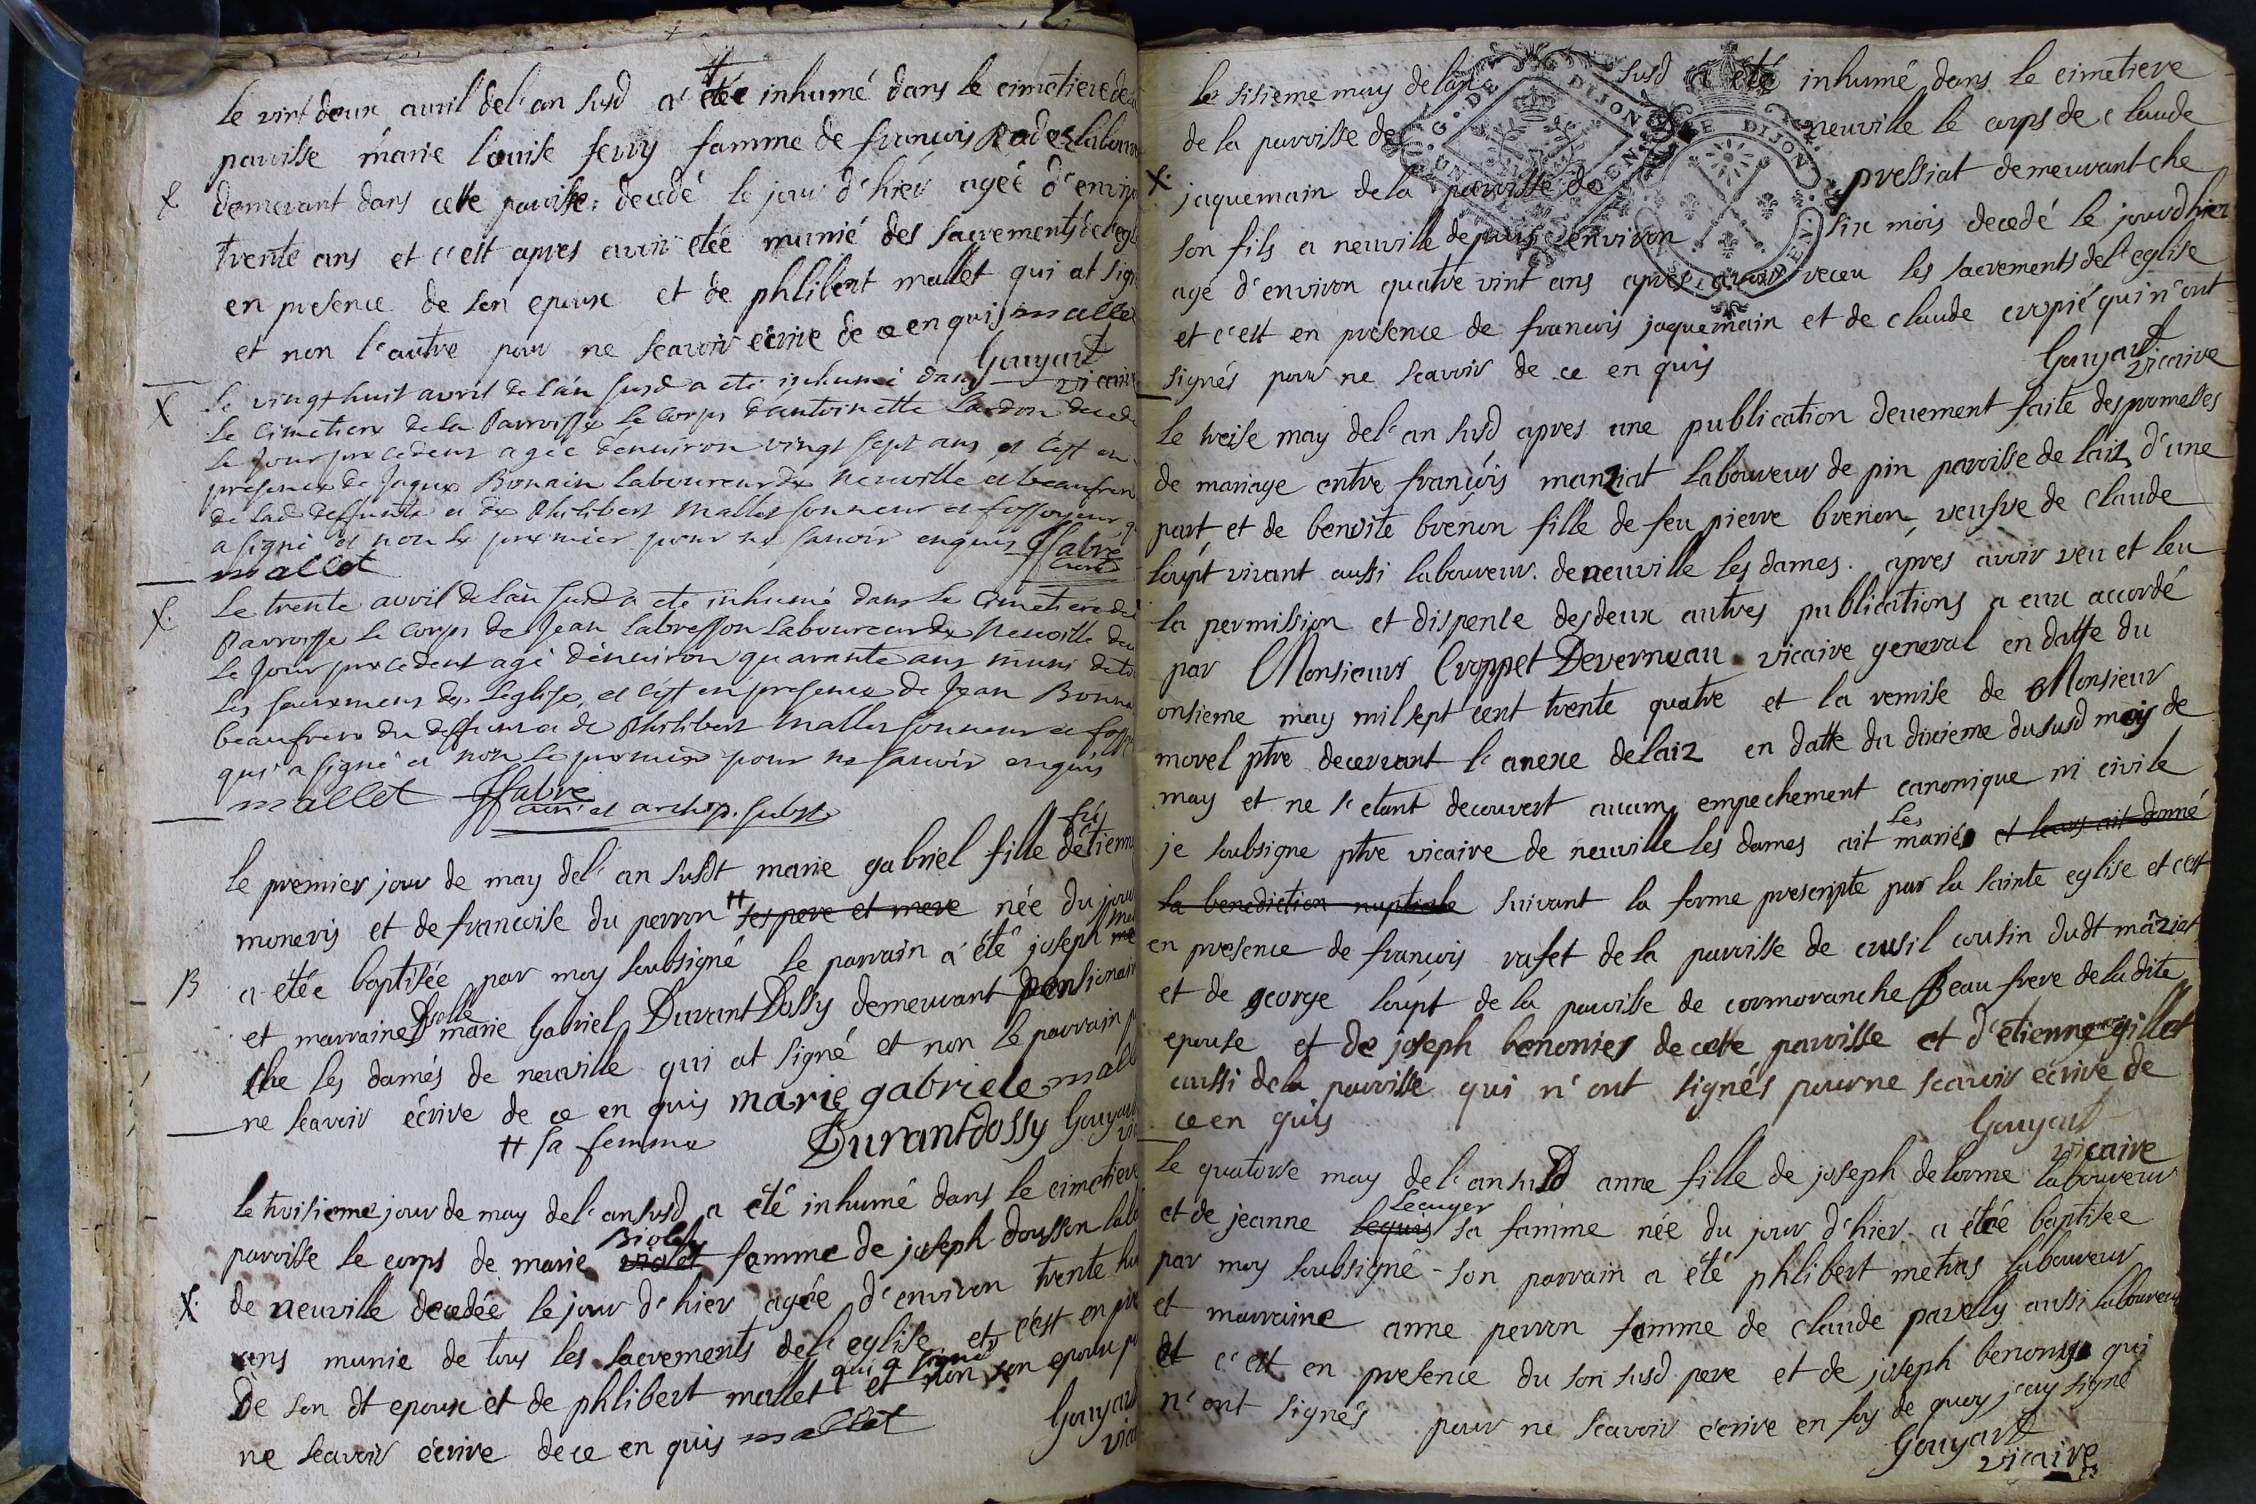 le vint deux avril de l'an susd a étée inhumé dans le cimetiere de
paroisse marie louise ferry famme de francois
demeurant dans cette paroisse decedé le jour d'hier agéé d'environ
trente ans et c'est apres avoir etée munié des sacrements de l'egl
en presence de son epoux et de phlibert mallet qui at sig
et non l'autre pour ne scavoir ecrire de ce en quis mallet
Gouyart
vicaire
Le vingt huit avril de l'an susd a eté inhumé dans
le Cimetiere de la Parroisse le corps d'antoinette Lardon deced
le Jour precedent agée denviron vingt sept ans, et c'est en
presence de Jaque Bonain laboureur de Neuville et beaufrere
de lad deffunte et de Philibert Mallet sonneur et fossoyeur q
a signé et non le premier pour ne savoir enquis Ffabre
mallet curé
Le trente avril de l'an susd a eté inhumé dans le Cimetiere de
Parroisse le corps de Jean labresson Laboureur de Neuville dec
le Jour precedent agé d'environ quarante ans muni de to
les sacremens de Leglise, et c'est en presence de Jean Bonna
beaufrere du deffunt et de Philibert Mallet sonneur et foss
qui a signé et non le premier pour ne savoir enquis
mallet Ffabre
curé et archip. subst
le premier jour de may de l'an susdt marie gabriel fille d'étienn
moneris et de francoise du perron # ses pere et mere née du jour
B a étée baptisée par moy soubsigné le parrain a été joseph
et marraine Dselle marie Gabriel Durant Dossy demeurant pensionair
che les damés de neuville qui at signé et non le parrain p
ne scavoir écrire de ce en quis marie gabriele mall
# sa femme Durantdossy Gouyart
le troisieme jour de may de l'an susd a été inhumé dans le cimetiere
paroisse le corps de marie violet Biolet famme de joseph dousson lab
de neuville decedée le jour d'hier agée d'environ trente hu
ans munie de tous les sacrements de l'eglise et c'est en pre
De son dt epoux et de phlibert mallet qui a signé et non son epoux p
ne scavoir écrire de ce en quis mallet
Gouyart
vica
le sisieme may de l'an susd a été inhumé dans le cimetiere
de la paroisse de neuville le corps de claude
jaquemain de la paroisse de pressiat demeurant che
son fils a neuville depuis environ six mois decedé le jour d'hier
agé d'environ quatre vint ans apres avoir receu les sacrements de l'eglise
et c'est en presence de francois jaquemain et de claude cropié qui n'ont
signés pour ne scavoir de ce en quis
Gouyart
vicaire
le treise may de l'an susd apres une publication deuement faite des promesses
de mariage entre françois manziat laboureur de pin paroisse de laiz d'une
part et de benoite brenon fille de feu pierre brenon, veufve de claude
loupt vivant aussi laboureur de neuville les dames. apres avoir veu et leu
la permission et dispense des deux autres publications a eux accordé
par Monsieurs Croppet Deverneau vicaire general en datte du
onsieme may mil sept cent trente quatre et la remise de Monsieur
morel ptre decervant l'anexe de laiz en datte du dixieme du susd mois de
may et ne s'etant decouvert aucun empechement canonique ni civile
je soubsigne ptre vicaire de neuville les dames ait les mariés et leurs ait donné
la benediction nuptiale suivant la forme prescripte par la sainte eglise et c'est
en presence de françois rafet de la paroisse de crusil cousin dudt mâziat
et de george loupt de la paroisse de cormoranche Beau frere de la dite
epouse et de joseph benonier de cette paroisse et d'etienne gillet
aussi de la paroisse qui n'ont signés pour ne scavoir écrire de
ce en quis
Gouyart
vicaire
Le quatorse may de l'an susd anne fille de joseph delorme laboureur
et de jeanne Lecuyer sa famme née du jour d'hier a étée baptisée
par moy soubsigné - son parrain a été phlibert metras laboureur
et marraine anne perron famme de claude pavelly aussi laboureur
et c'est en presence du son susd pere et de joseph benonier qui
n'ont signés pour ne scavoir écrire en foy de quoy j'ay signé
Gouyart
vicaire